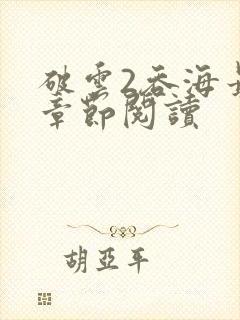 破雲2吞海最
章節閱讀
胡亞平